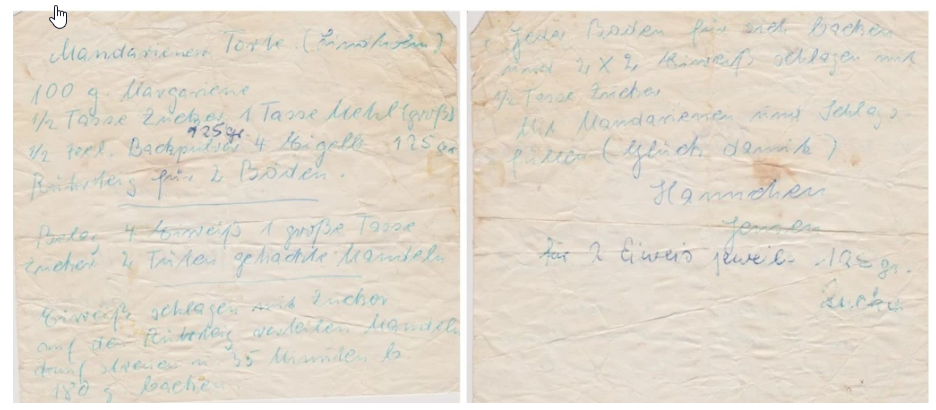 Mandarienen Torte.
100 g. Margariene
1/2 Tasse Zucker 1 Tasse Mehl (groß)
125 gr.
1/2 Backpulver 4 Eigelb 125 gr
Rührteig für 2 Böden.
Belag 4 Eiweiß 1 große Tasse
Zucker 2 Tüten gehackte Mandeln
Eiweiße schlagen mit Zucker
auf den Rührteig verteilen Mandeln
drauf streuen u 35 Minuten b
180 g backen
Jeder Boden für sich backen
und 2 X 2 Eiweiß schlagen mit
1/2 Tasse Zucker
Mit Mandarienen und Schlags.
füllen (Glück damit)
Hannchen
Jensen
für 2 Eiweis jeweil. 125 gr.
Zucker